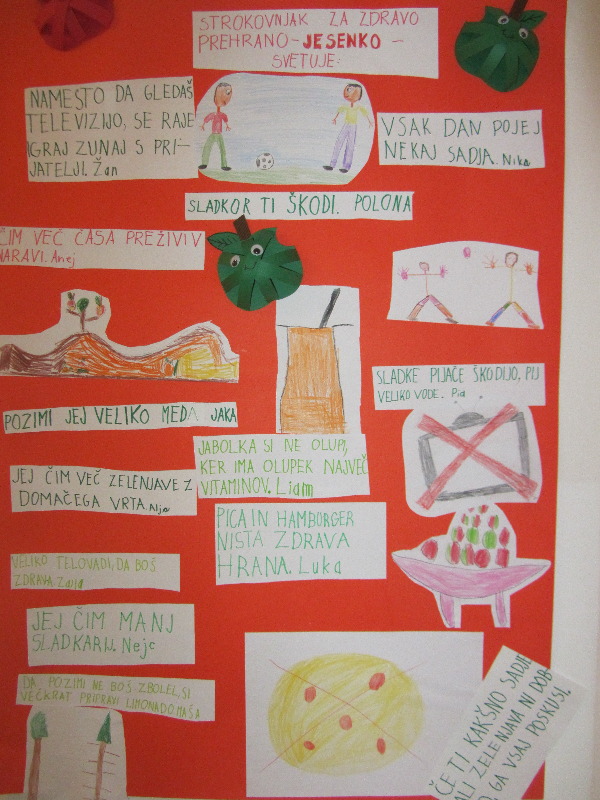 STROKOVNJAK ZA ZDRAVO
PREHRANO - JESENKO -
SVETUJE:
NAMESTO DA GLEDAŠ
TELEVIZIJO, SE RAJE
IGRAJ ZUNAJ S PRI-
JATELJI. Žan
VSAK DAN POJEJ
NEKAJ SADJA. Nika
SLADKOR TI ŠKODI. POLONA
ČIM VEČ ČASA PREŽIVI V
NARAVI. Anej
SLADKE PIJAČE ŠKODIJO, PIJ
VELIKO VODE. Pia
POZIMI JEJ VELIKO MEDA JAKA
JABOLKA SI NE OLUPI,
KER IMA OLUPEK NAJVEČ
VITAMINOV. Liam
JEJ ČIM VEČ ZELENJAVE Z
DOMAČEGA VRTA. Alja
PICA IN HAMBORGER
NISTA ZDRAVA
HRANA. Luka
VELIKO TELOVADI, DA BOŠ
ZDRAVA
JEJ ČIM MANJ
SLADKARIJ. Nejc
DA POZIMI NE BOŠ ZBOLEL, SI
VEČKRAT PRIPRAVI LIMONADO. MAŠA
ČE TI KAKŠNO SADJE
ALI ZELENJAVA NI DOB-
GA VSAJ POSKUSI.